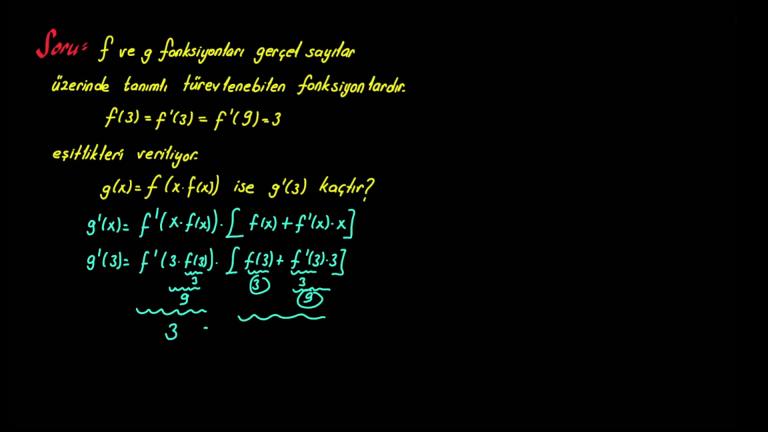 Soru= f ve g fonksiyonları gerçel sayılar
üzerinde tanımlı türevlenebilen fonksiyonlardır.
f(3) = f'(3) = f'(9) = 3
eşitlikleri veriliyor.
g(x) = f(x.f(x)) ise g'(3) kaçtır?
g'(x) = f'(x.f(x)).[f(x) + f'(x).x]
g'(3) = f'(3.f(3)).[f(3) + f'(3).3]
3 3 3
9 9
3 .